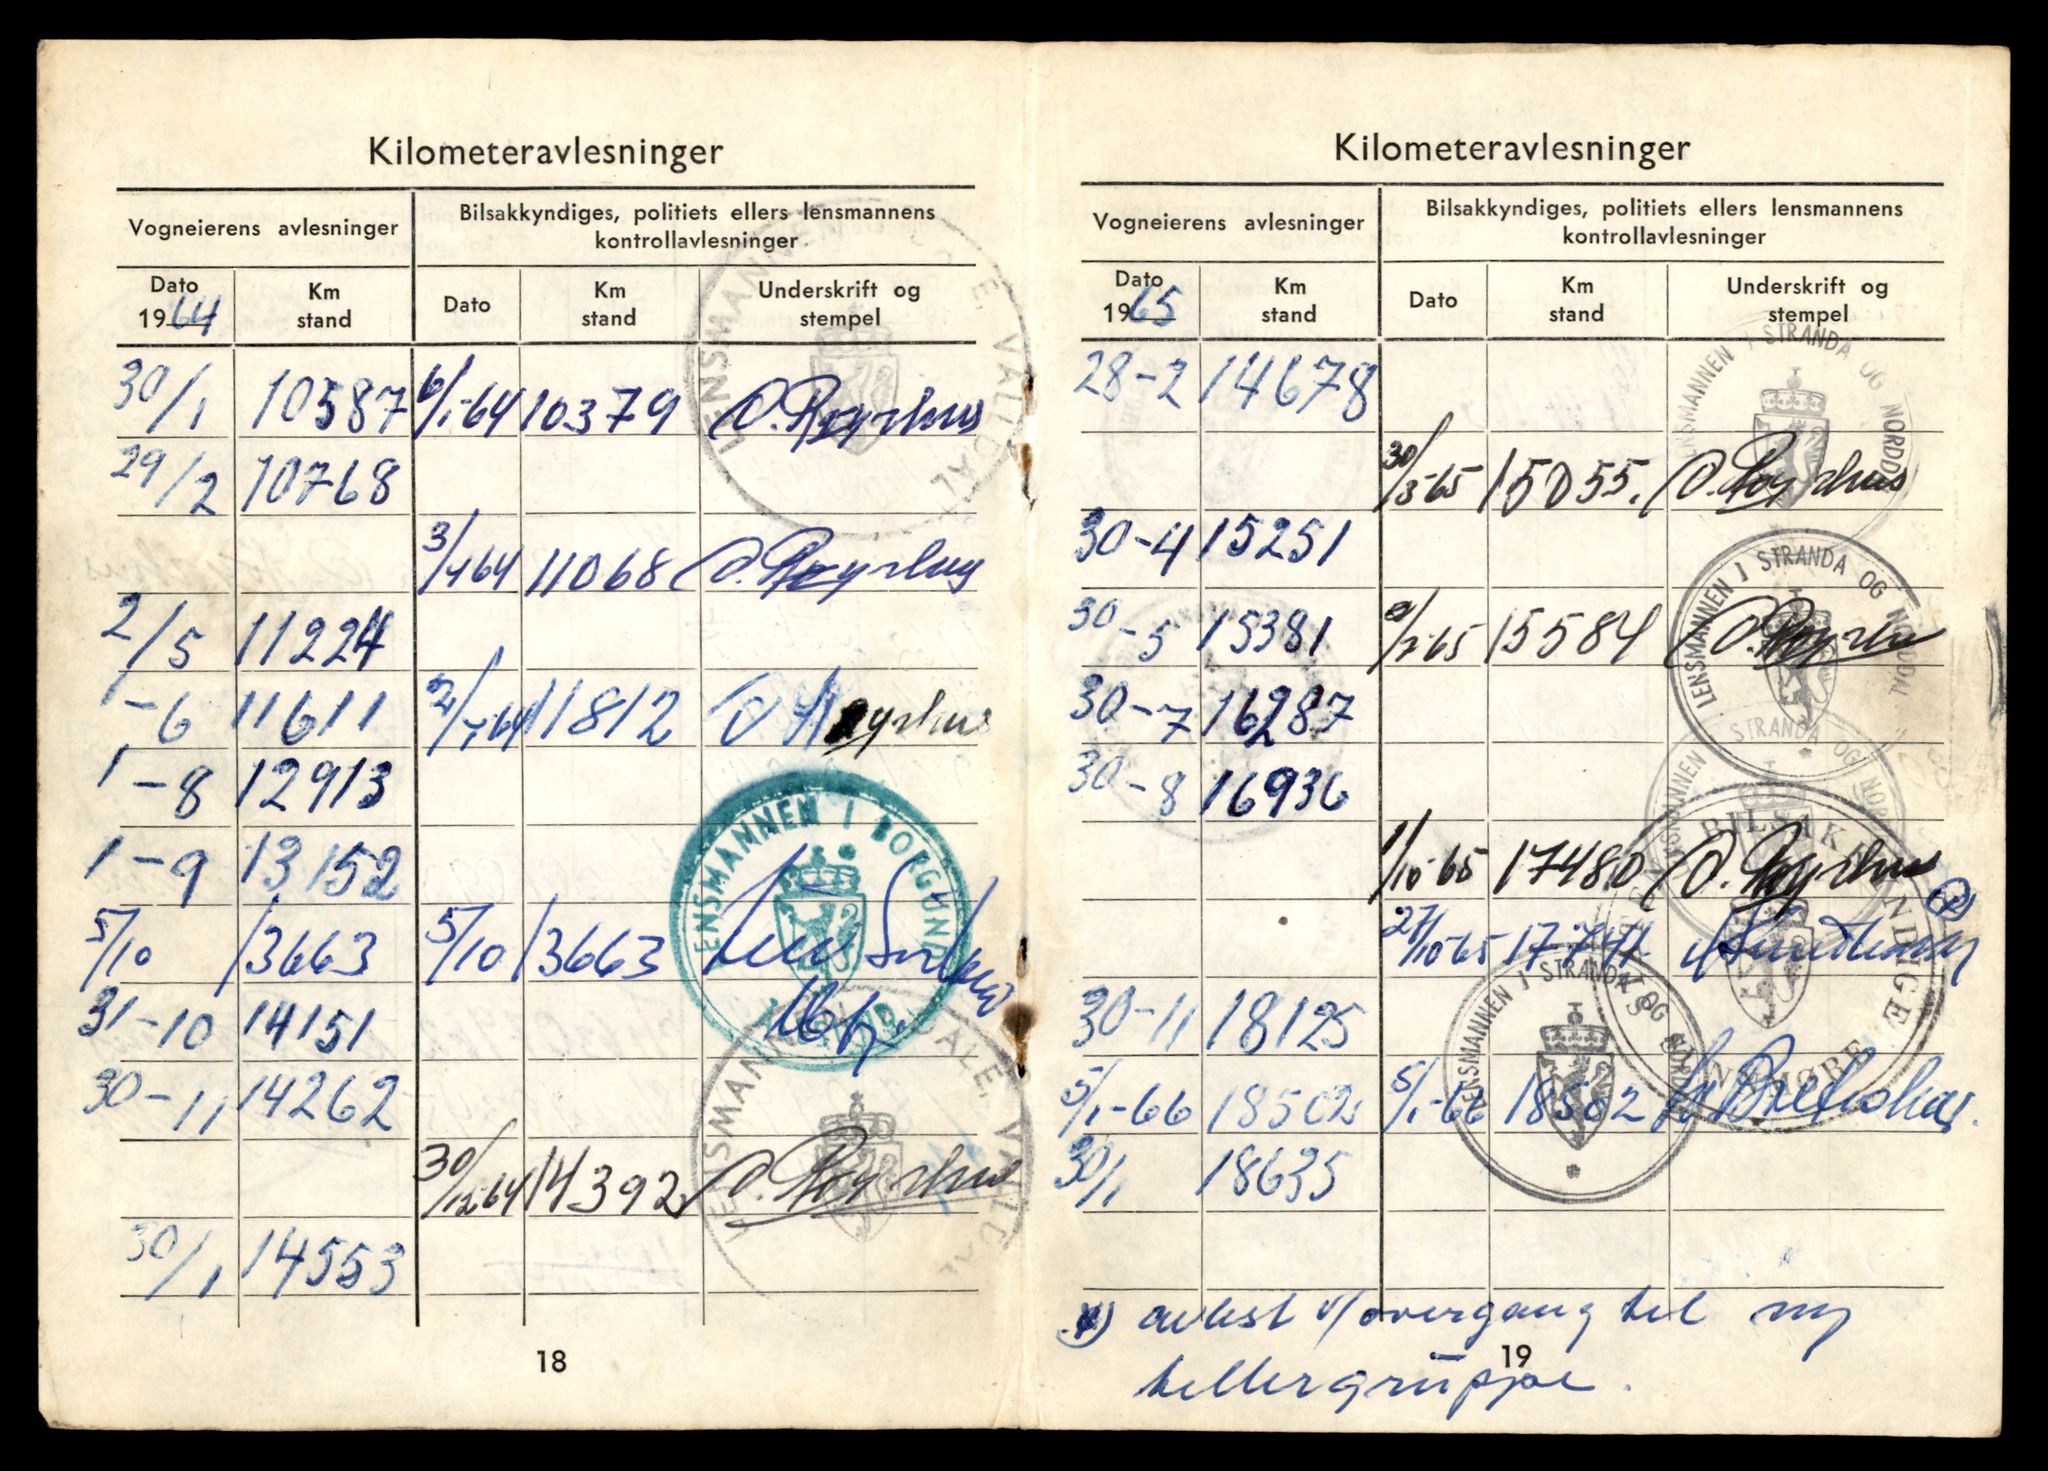 Kilometeravlesninger
Vogneierens avlesninger
Bilsakkyndiges, politiets ellers lensmannens
kontrollavlesninger
Dato
1964
Km
stand
Dato
Km
stand
Underskrift og
stempel
30/1 10587 6/1-64 10379 O. Røyrhus
29/2 10768
3/4 64 11068 O. Røyrhus
2/5 11224
1-6 11611 2/7-64 11812 O Røyrhus
1-8 12913
1-9 13152
5/10 13663 5/10 13663
31-10 14151
30-11 14262
30/12-64 14392 O. Røyrhus
30/1 14553
LENSMANNEN I BORGUND
18
Kilometeravlesninger
Vogneierens avlesninger
Bilsakkyndiges, politiets ellers lensmannens
kontrollavlesninger
Dato
1965
Km
stand
Dato
Km
stand
Underskrift og
stempel
28-2 14678
30/3-65 15055. O. Røyrhus
30-4 15251
30-5 15381 15584 O. Røyrhus
30-7 16287
30-8 16936
1/10-65 17480 O. Røyrhus
27/10-65
30-11 18125
5/1-66 18502 5/1-66 18502
30/1 18635
LENSMANNEN I STRANDA OG NORDDAL
LENSMANNEN I STRANDA OG NORDDAL
LENSMANNEN I STRANDA OG
avlest v/overgang til ny
tellergruppe.
19